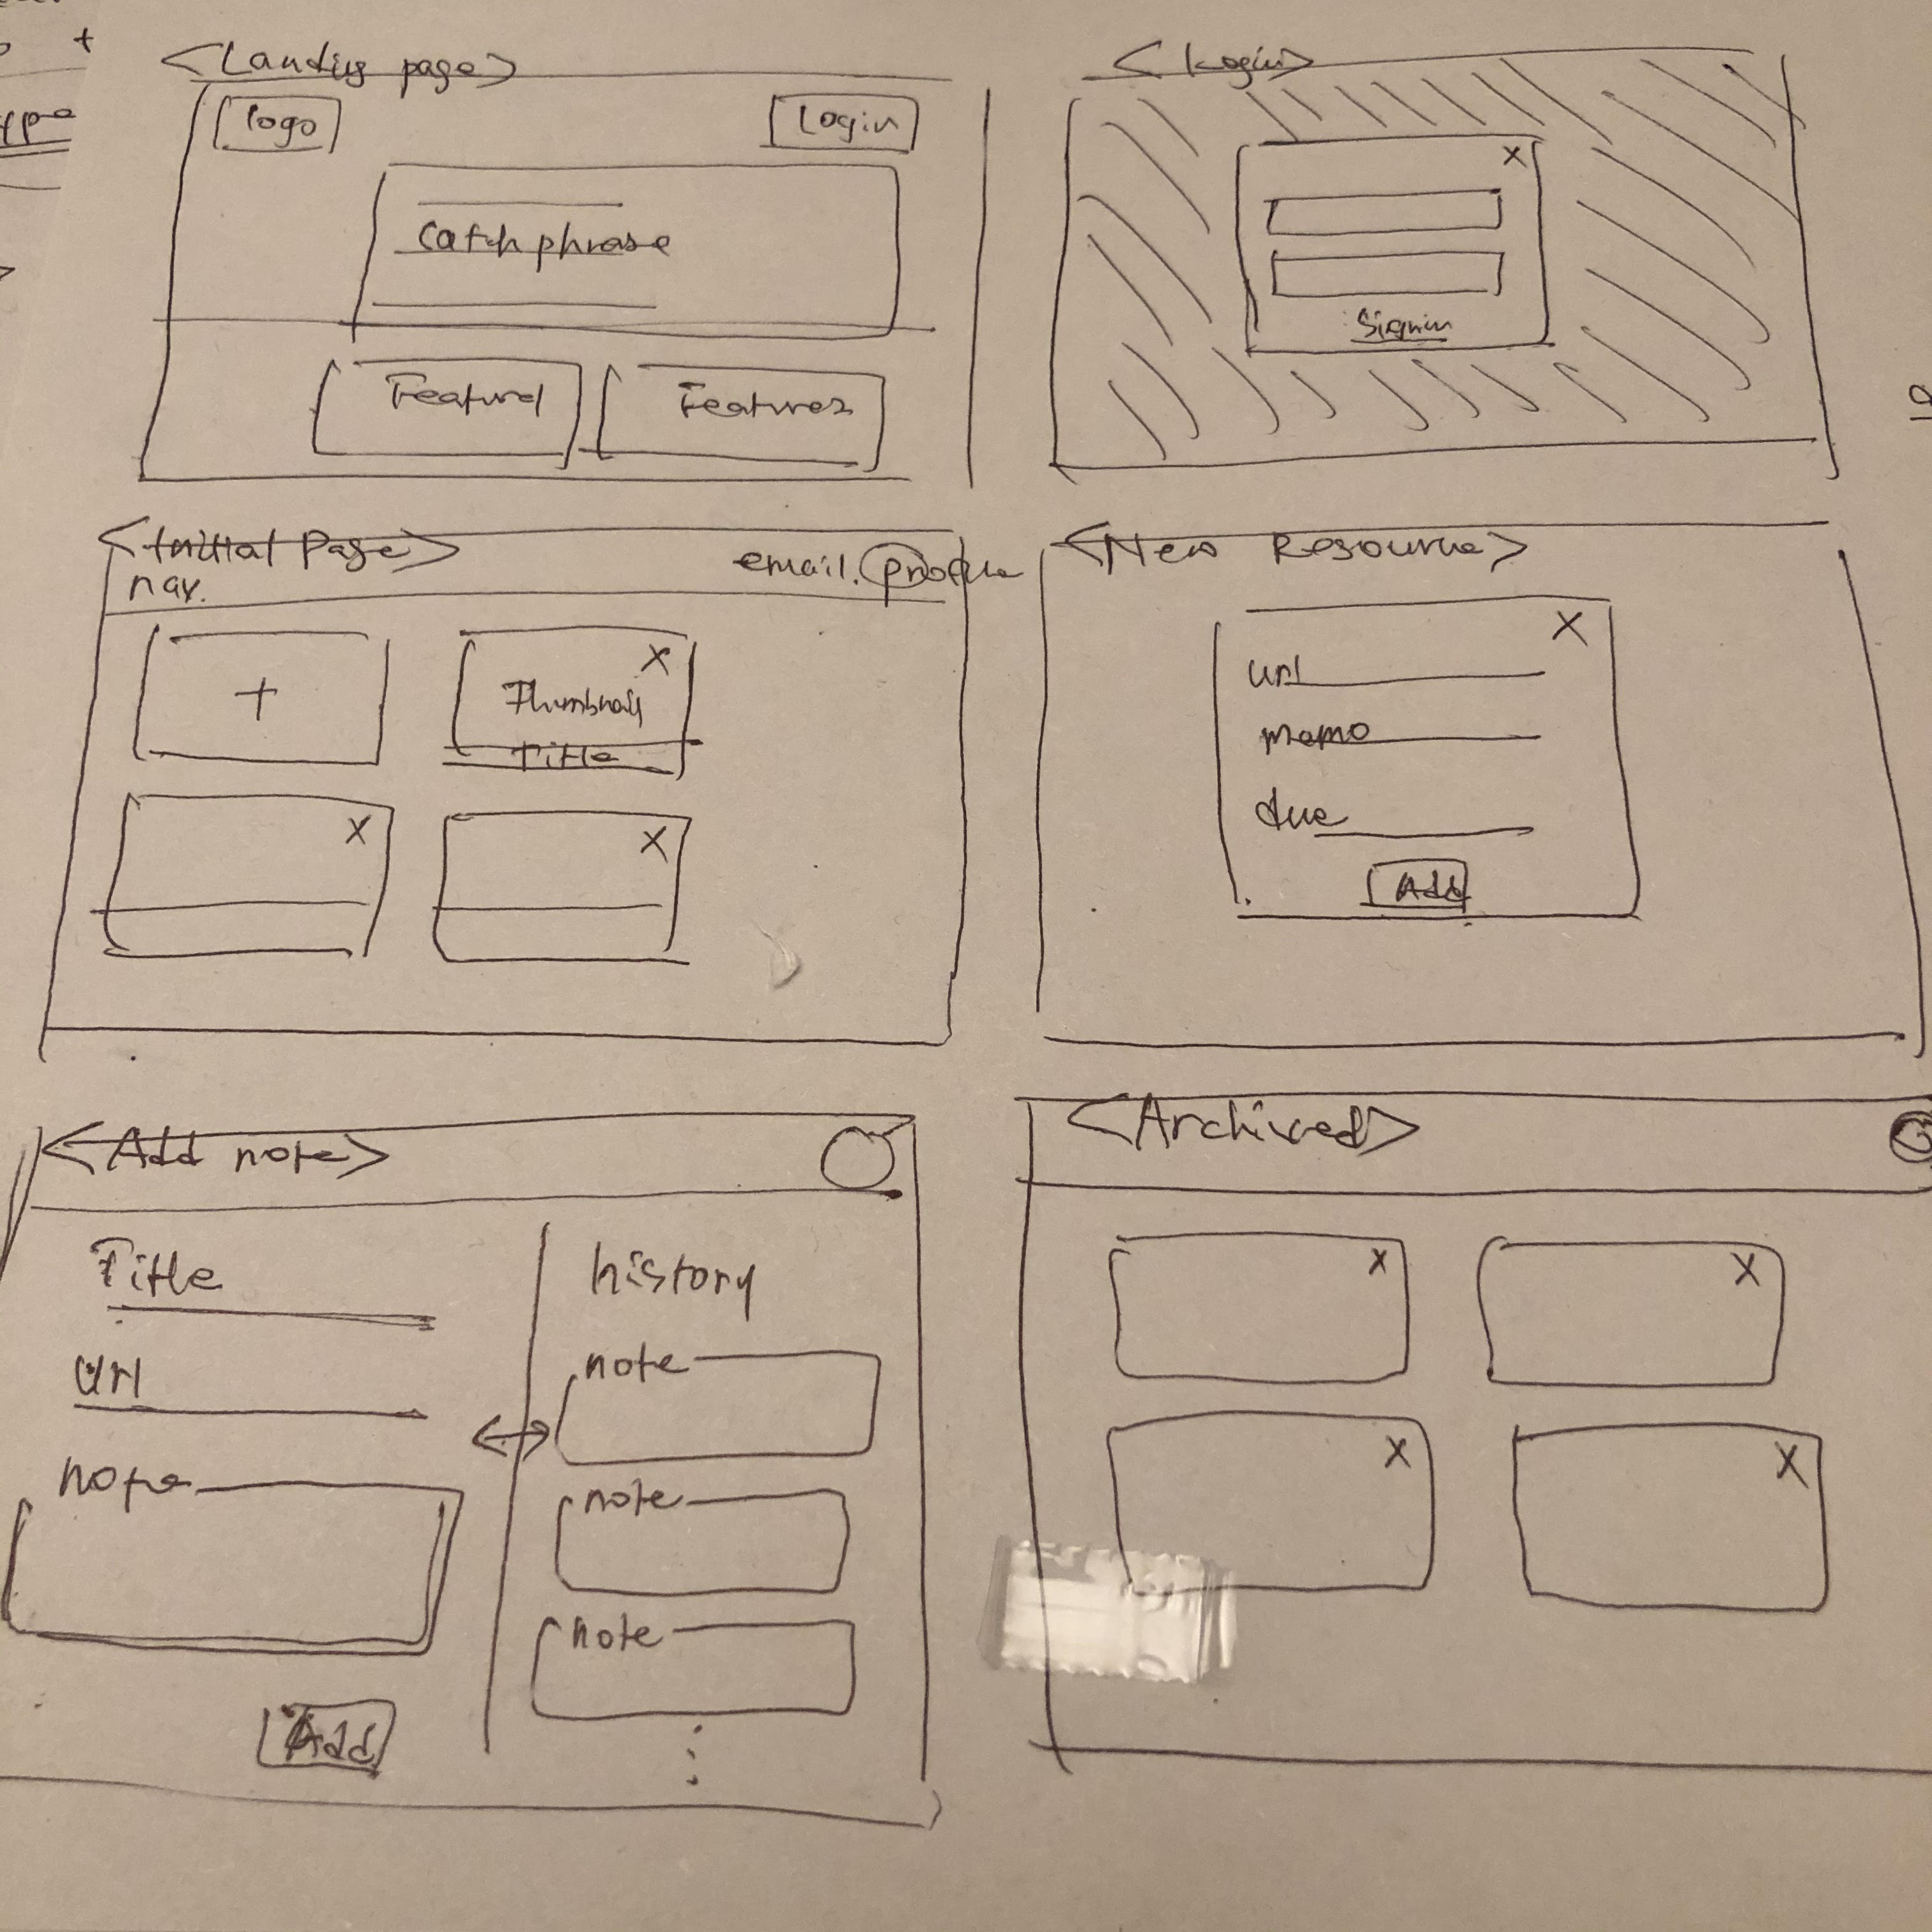 <Landing page>
logo
Login
Catch phrase
Feature1
Feature2
<Login>
X
Signin
<Initial Page>
nav.
email. profile
+
X
Thumbnail
Title
X
X
<New Resource>
X
url
memo
due
Add
<Add note>
Title
url
note
Add
history
note
note
note
<Archived>
X
X
X
X